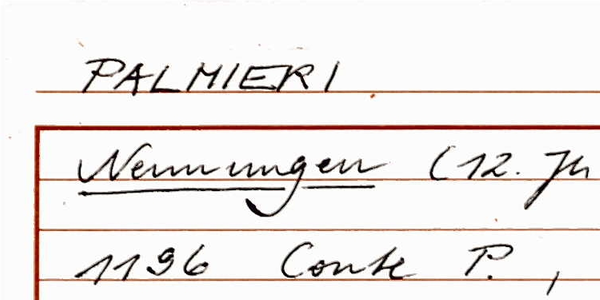 PALMIERI
Nennungen (12. Jh
1196 Conte P.,